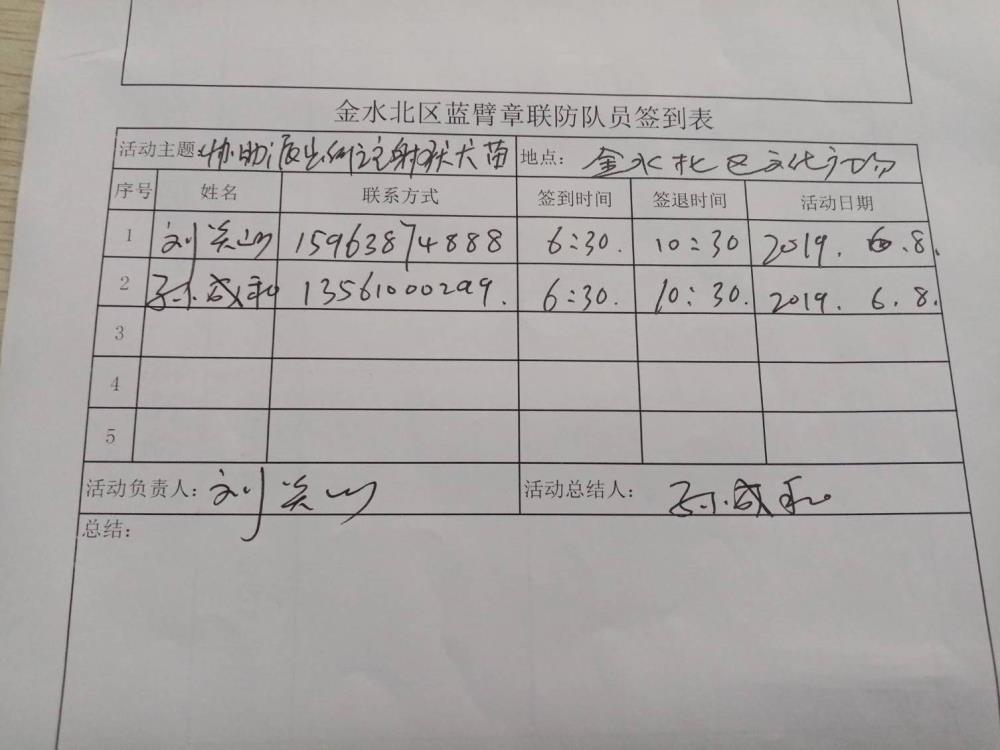 金水北区蓝臂章联防队员签到表
活动主题:协助派出所注射狂犬苗 地点: 金水北区文化广场
序号 姓名 联系方式 签到时间 签退时间 活动日期
1 刘关山 15963874888 6:30. 10:30 2019. 6.8.
2 孙成和 13561000299. 6:30. 10:30. 2019. 6.8.
3
4
5
活动负责人: 刘关山 活动总结人: 孙成和
总结: